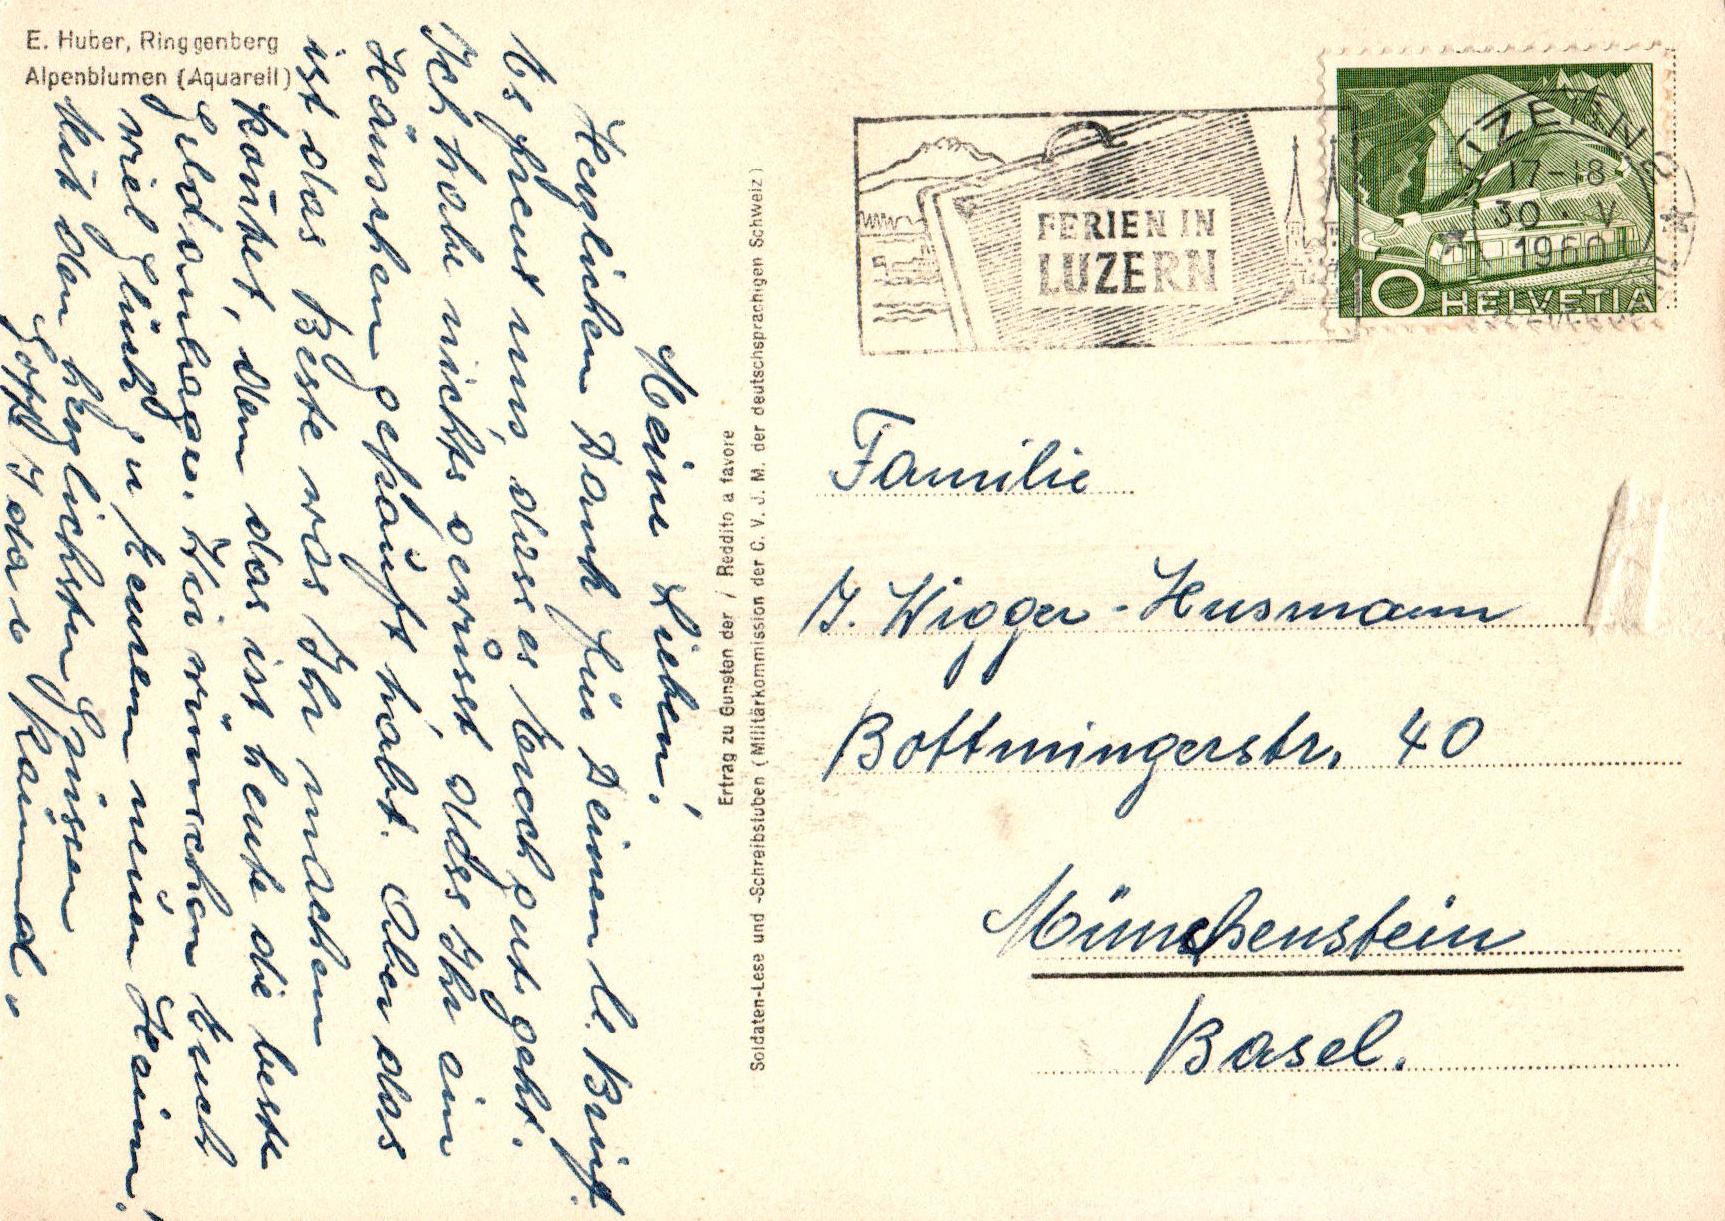 E. Huber, Ringgenberg
Alpenblumen (Aquarell)
Meine Lieben!
Herzlichen Dank für Deinen lb. Brief.
Es freut uns, dass es Euch gut geht.
Ich habe nichts gewusst dass Ihr ein
Häuschen gekauft habt. Aber das
ist das Beste was Ihr machen
konntet, denn das ist heute die beste
Geldanlage. Wir wünschen Euch
viel Glück zu Eurem neuen Heim!
Mit den herzlichsten Grüssen
Ertrag zu Gunsten der / Reddito a favore
Soldaten-Lese und -Schreibstuben (Militärkommission der C. V. J. M. der deutschsprachigen Schweiz)
FERIEN IN
LUZERN
LUZERN
17-18
30. V.
1960
10 HELVETIA
Familie
J. Wigger-Husmann
Bottmingerstr. 40
Münchenstein
Basel.